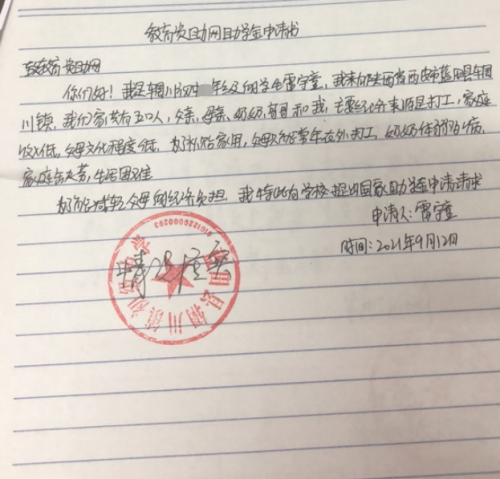 教育资助网助学金申请书
教育资助网
你们好！我是辋川 四年级 的学生雷宇童，我来自陕西省西安市蓝田县辋
川镇，我们家共有五口人，父亲，母亲，奶奶，和我，主要经济来源是打工，家庭
收入低，父母文化程度低，为了补贴家用，父母只能常年在外打工，奶奶体弱多病，
家庭负担，生活困难
为了减轻父母的经济负担，我特此向学校提出国家助学金申请书
申请人：雷宇童
时间：2021年9月12日
情况属实
县辋川镇